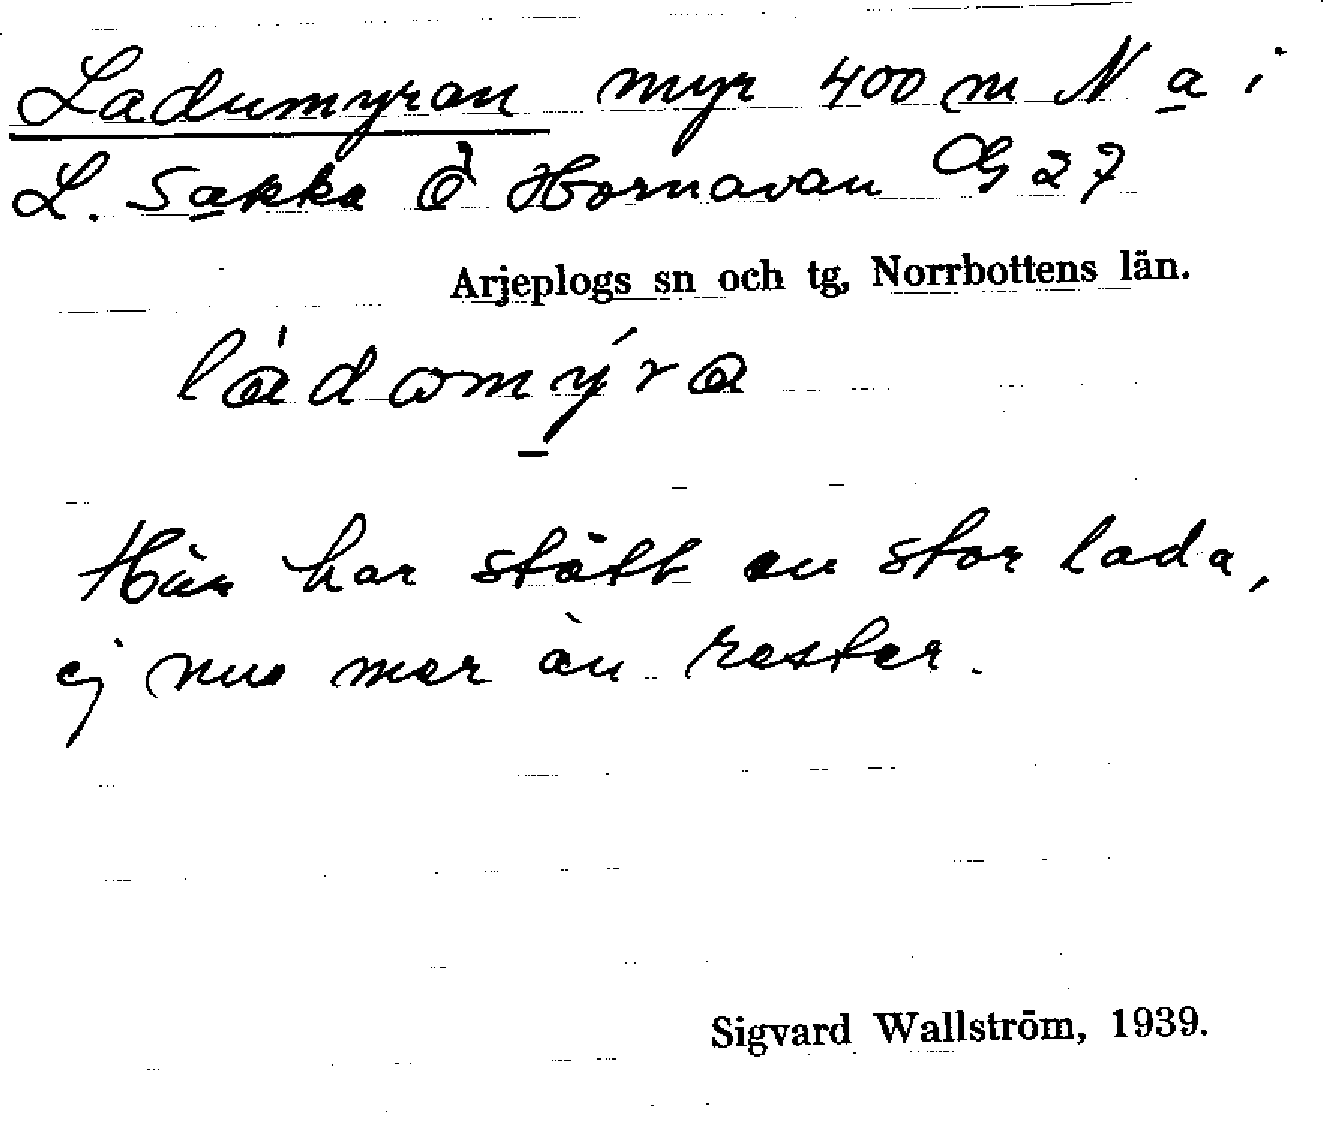 Ladumyran myr 400 m N a i
L. Sakka Ö Hornavan G 27
Arjeplogs sn och tg, Norrbottens län.
ládamýra
Här har stått en stor lada,
ej nu mer än rester.
Sigvard Wallström, 1939.